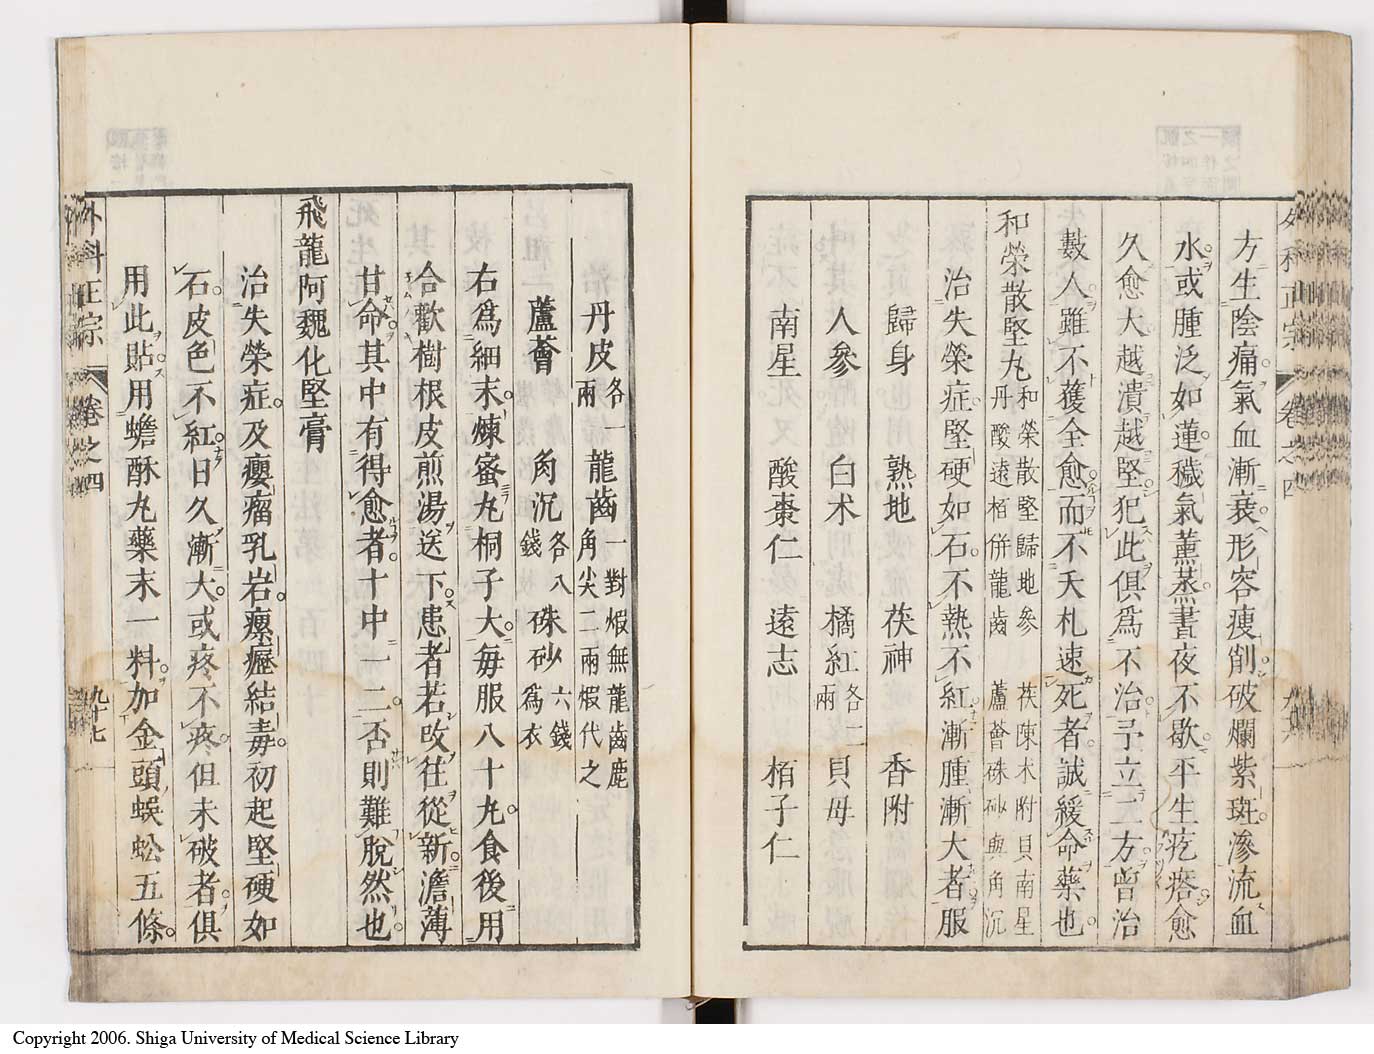 方生陰痛氣血漸衰形容痩削破爛紫斑滲流血
水或腫泛如蓮穢氣薫蒸晝夜不歇平生疙瘩愈
久愈大越潰越堅犯此俱爲不治予立二方曾治
數人雖不獲全愈而不夭札速死者誠緩命藥也
和榮散堅丸 和榮散堅歸地參 茯陳术附貝南星
丹酸遠栢併龍齒 蘆薈硃砂與角沉
治失榮症堅硬如石不熱不紅漸腫漸大者服
歸身 熟地 茯神 香附
人參 白术 橘紅 各二兩 貝母
南星 酸棗仁 遠志 栢子仁
外科正宗 卷之四 九十六
丹皮 各一兩 龍齒 一對煆無龍齒鹿
角尖二兩煆代之
蘆薈 角沉 各八錢 硃砂 六錢爲衣
右爲細末煉蜜丸桐子大毎服八十丸食後用
合歡樹根皮煎湯送下患者若攺往從新澹薄
甘命其中有得愈者十中一二否則難脫然也
飛龍阿魏化堅膏
治失榮症及癭瘤乳岩瘰癧結毒初起堅硬如
石皮色不紅日久漸大或疼不疼但未破者俱
用此貼用蟾酥丸藥末一料加金頭蜈蚣五條
外科正宗 卷之四 九十七
Copyright 2006. Shiga University of Medical Science Library